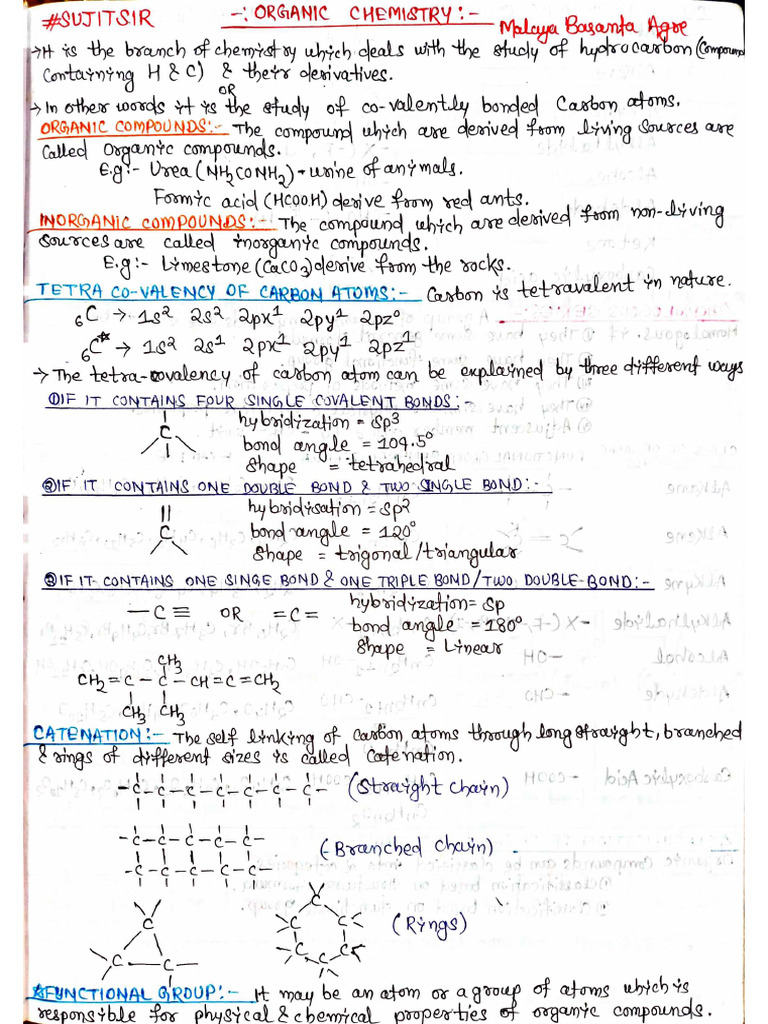 #SUJITSIR
-: ORGANIC CHEMISTRY:-
Malaya Basanta Agre
→ It is the branch of chemistry which deals with the study of hydrocarbon (compound
containing H & C) & their derivatives.
OR
→ In other words it is the study of co-valently bonded Carbon atoms.
ORGANIC COMPOUNDS:- The compound which are derived from living sources are
called Organic compounds.
E.g:- Urea (NH2CONH2) → urine of animals.
Formic acid (HCOOH) derive from red ants.
INORGANIC COMPOUNDS:- The compound which are derived from non-living
sources are called inorganic compounds.
E.g:- Limestone (CaCO3) derive from the rocks.
TETRA CO-VALENCY OF CARBON ATOMS:- Carbon is tetravalent in nature.
₆C → 1s² 2s² 2px¹ 2py¹ 2pz⁰
₆C* → 1s² 2s¹ 2px¹ 2py¹ 2pz¹
→ The tetra-covalency of carbon atom can be explained by three different ways
①IF IT CONTAINS FOUR SINGLE COVALENT BONDS:-
C
hybridization = Sp³
bond angle = 109.5°
Shape = tetrahedral
②IF IT CONTAINS ONE DOUBLE BOND & TWO SINGLE BOND:-
C
hybridisation = Sp²
bond angle = 120°
Shape = trigonal/triangular
③IF IT CONTAINS ONE SINGE BOND & ONE TRIPLE BOND/TWO DOUBLE-BOND:-
—C≡ OR =C=
hybridization= Sp
bond angle = 180°
Shape = Linear
CH3
CH2=C-C-CH=C=CH2
CH3 CH3
CATENATION:- The self linking of carbon atoms through long straight, branched
& rings of different sizes is called Catenation.
-C-C-C-C-C-C-C- (Straight chain)
-C-C-C-C-C-
(Branched chain)
-C-C-C-C-C-
C
C C
C
C C
C C
C
(Rings)
*FUNCTIONAL GROUP:- It may be an atom or a group of atoms which is
responsible for physical & chemical properties of organic compounds.